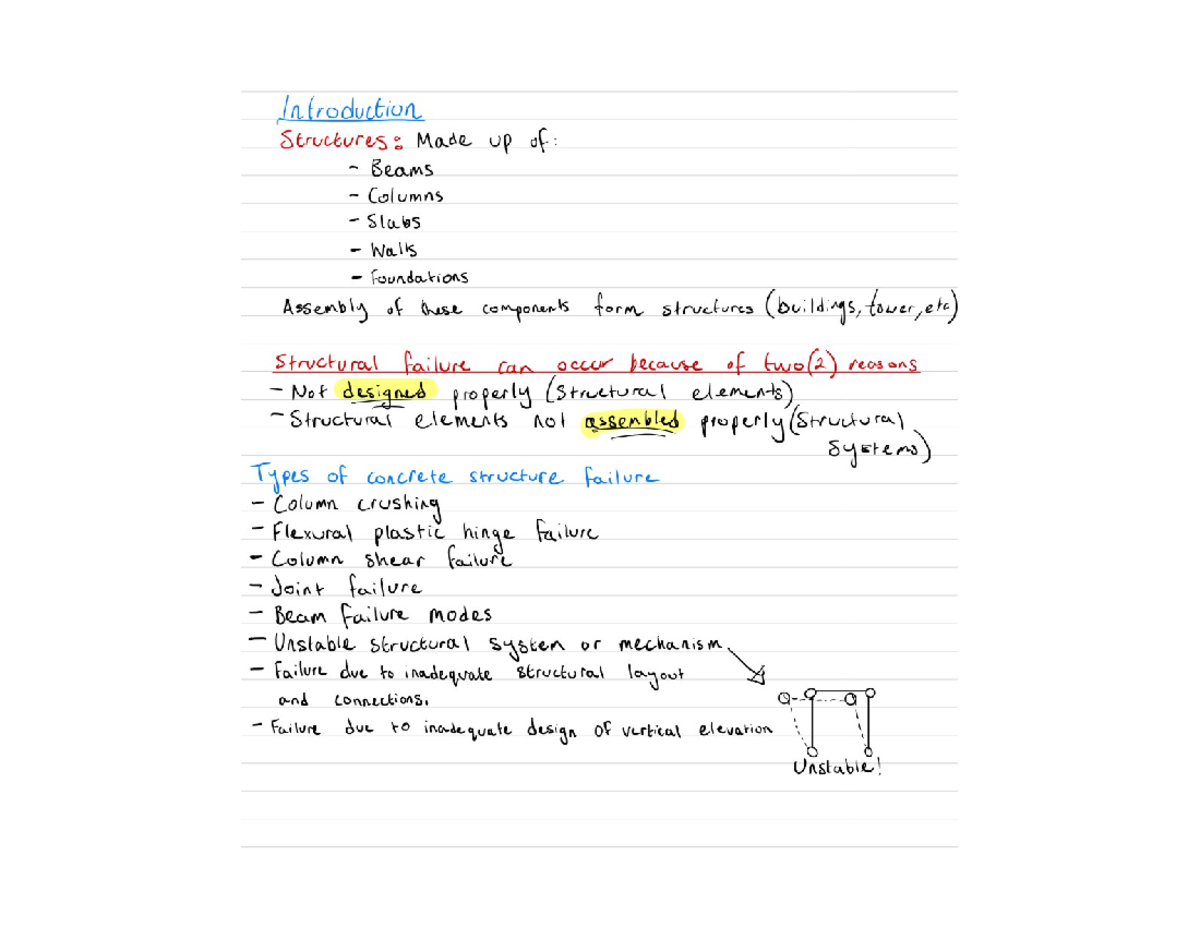 Introduction
Structures: Made up of:
- Beams
- Columns
- Slabs
- Walls
- Foundations
Assembly of these components form structures (buildings, tower, etc)
Structural failure can occur because of two(2) reasons
- Not designed properly (Structural elements)
- Structural elements not assembled properly (Structural
Systems)
Types of concrete structure failure
- Column crushing
- Flexural plastic hinge failure
- Column shear failure
- Joint failure
- Beam failure modes
- Unstable structural system or mechanism
- Failure due to inadequate structural layout
and connections.
- Failure due to inadequate design of vertical elevation
Unstable!